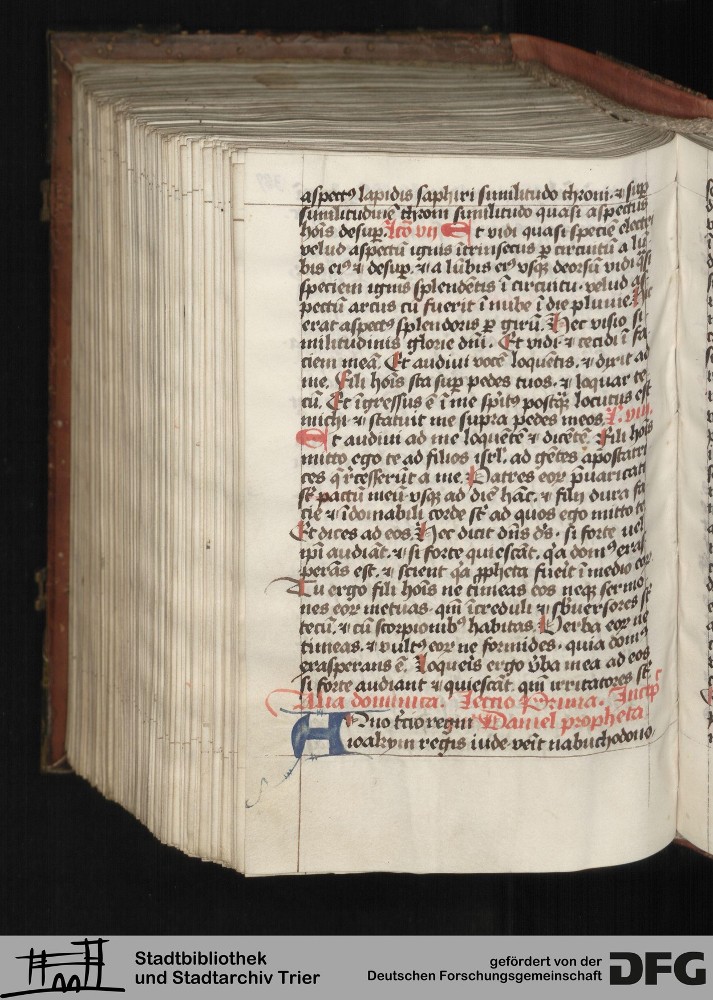 aspectꝰ lapidis saphiri similitudo throni. ⁊ sup̄
similitudinē throni similitudo quasi aspectus
hoīs desup. lc̄o vii Et vidi quasi speciē electri
velud aspectū ignis ītrinsecus ꝑ circuitū a lū
bis eiꝰ ⁊ desup. ⁊ a lūbis eiꝰ vsqꝫ deorsū vidi q̄si
speciem ignis splendētis ī circuitu. velud as
pectū arcus cū fuerit ī nube ī die pluuie. Hic
erat aspectꝰ splendoris ꝑ girū. Hec visio si
militudinis glorie dn̄i. Et vidi ⁊ cecidi ī fa
ciem meā. Et audiui vocē loquētis. ⁊ dixit ad
me. Fili hoīs sta sup pedes tuos. ⁊ loquar te
cū. Et īgressus ē ī me spūs postqꝫ locutus est
michi ⁊ statuit me supra pedes meos. l. viii.
Et audiui ad me loquētē ⁊ dicētē. Fili hoīs
mitto ego te ad filios isrl'. ad gētes apostatri
ces q̄ recesserūt a me. Patres eoꝝ p̄uaricati
st̄ pactū meū vsqꝫ ad diē hāc. ⁊ filij dura fa
cie ⁊ īdomabili corde st̄ ad quos ego mitto te
Et dices ad eos. Hec dicit dn̄s ds̄. si forte uel
ip̄i audiāt. ⁊ si forte quiescāt. q̄a domꝰ exas
perās est. ⁊ scient q̄a ꝓpheta fuerit ī medio eoꝝ
Tu ergo fili hoīs ne timeas eos neqꝫ sermo
nes eoꝝ metuas. qm̄ īcreduli ⁊ sbuersores st̄
tecū. ⁊ cū scorpionibꝰ habitas. Verba eoꝝ ne
timeas. ⁊ vultꝰ eoꝝ ne formides. quia domꝰ
exasperans ē. Loqueris ergo v̄ba mea ad eos
si forte audiant ⁊ quiescāt. qm̄ irritatores st̄
Alia dominica. Lectio Prima. Incip̄
Anno t̄cio regni Daniel propheta
ioakym regis iude. veīt nabuchodono
Stadtbibliothek
und Stadtarchiv Trier
gefördert von der
Deutschen Forschungsgemeinschaft
DFG